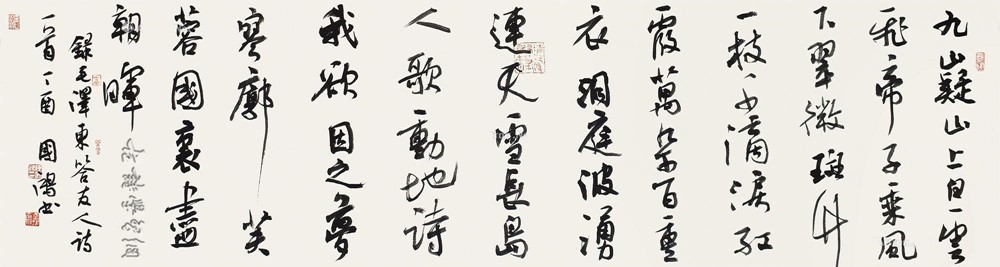 九嶷山上白雲
飛帝子乘風
下翠微斑竹
一枝千滴淚紅
霞萬朵百重
衣洞庭波湧
連天雪長島
人歌動地詩
我欲因之夢
寥廓芙
蓉國裏盡
朝暉
錄毛澤東答友人詩
一首丁酉國書